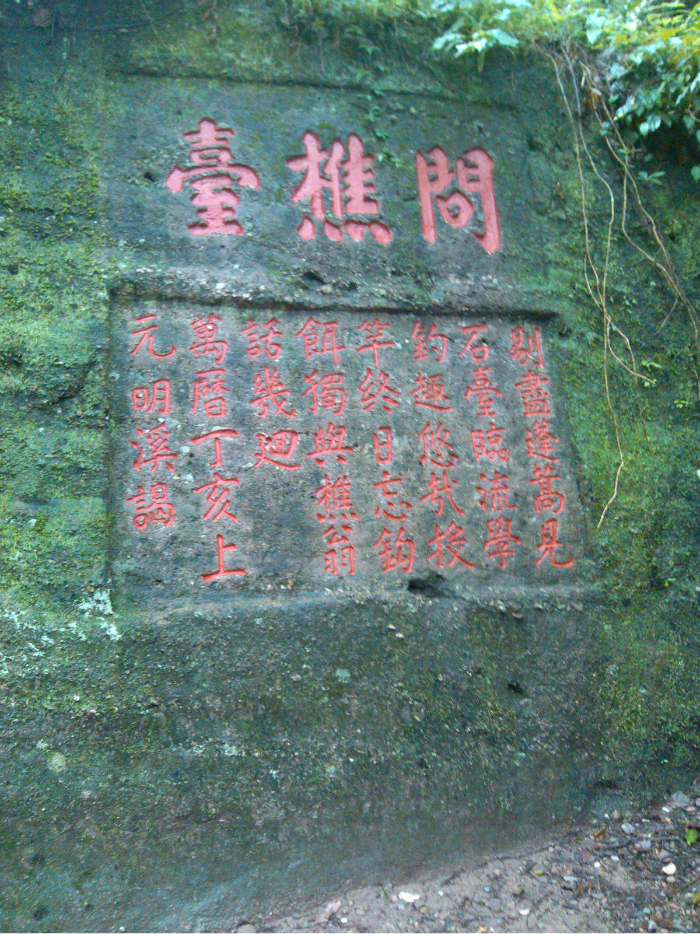 問樵臺
剔盡蓬蒿見
石臺臨流學
釣趣悠哉投
竿終日忘鈎
餌獨與樵翁
話幾廻
萬曆丁亥上
元明溪謁